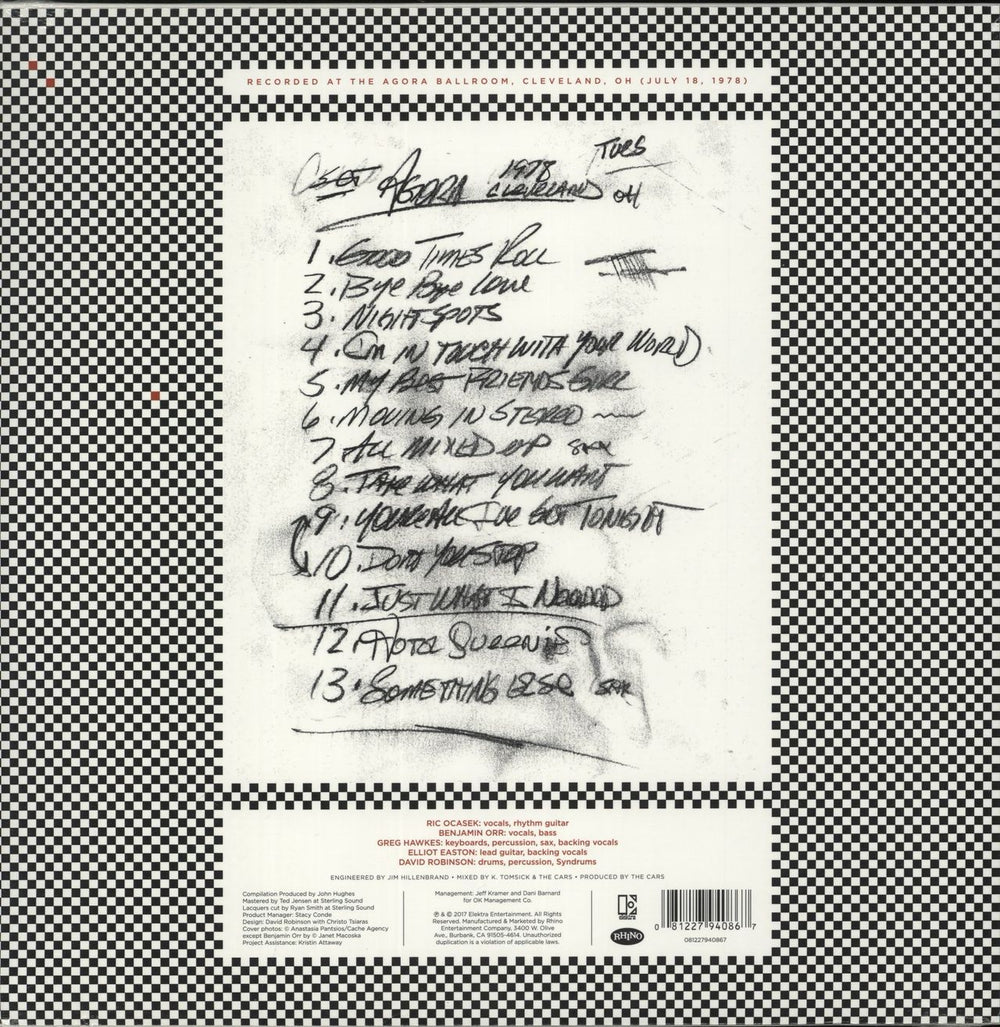 RECORDED AT THE AGORA BALLROOM, CLEVELAND, OH (JULY 18, 1978)
TUES
SET AGORA 1978 CLEVELAND OH
1. GOOD TIMES ROLL
2. Bye Bye Love
3. NIGHT SPOTS
4. I'm IN TOUCH WITH YOUR WORLD
5. MY BEST FRIENDS GIRL
6. MOVING IN STEREO
7 ALL MIXED UP SAX
8. TAKE WHAT YOU WANT
9. YOU'RE ALL I'VE GOT TONIGHT
10. DON'T YOU STOP
11. JUST WHAT I NEEDED
12 HOTEL QUEENIE
13. SOMETHING ELSE SAX
RIC OCASEK: vocals, rhythm guitar
BENJAMIN ORR: vocals, bass
GREG HAWKES: keyboards, percussion, sax, backing vocals
ELLIOT EASTON: lead guitar, backing vocals
DAVID ROBINSON: drums, percussion, Syndrums
ENGINEERED BY JIM HILLENBRAND • MIXED BY K. TOMSICK & THE CARS • PRODUCED BY THE CARS
Compilation Produced by John Hughes
Mastered by Ted Jensen at Sterling Sound
Lacquers cut by Ryan Smith at Sterling Sound
Product Manager: Stacy Conde
Design: David Robinson with Christo Tsiaras
Cover photos: © Anastasia Pantsios/Cache Agency
except Benjamin Orr by © Janet Macoska
Project Assistance: Kristin Attaway
Management: Jeff Kramer and Dani Barnard
for OK Management Co.
℗ & © 2017 Elektra Entertainment. All Rights
Reserved. Manufactured & Marketed by Rhino
Entertainment Company, 3400 W. Olive
Ave., Burbank, CA 91505-4614. Unauthorized
duplication is a violation of applicable laws.
elektra
RHINO
0 81227 94086 7
081227940867